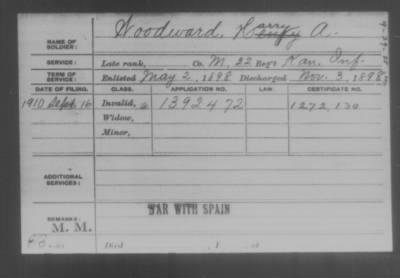 NAME OF SOLDIER: Woodward, Harry A.
SERVICE: Late rank, Co. M, 22 Reg't Kan. Inf.
TERM OF SERVICE: Enlisted May 2, 1898 Discharged Nov. 3, 1898
DATE OF FILING. CLASS. APPLICATION NO. LAW. CERTIFICATE NO.
1910 Sept. 16 Invalid, 1392472 1272,130
Widow,
Minor,
ADDITIONAL SERVICES:
WAR WITH SPAIN
REMARKS:
M. M.
Died , 1 , at